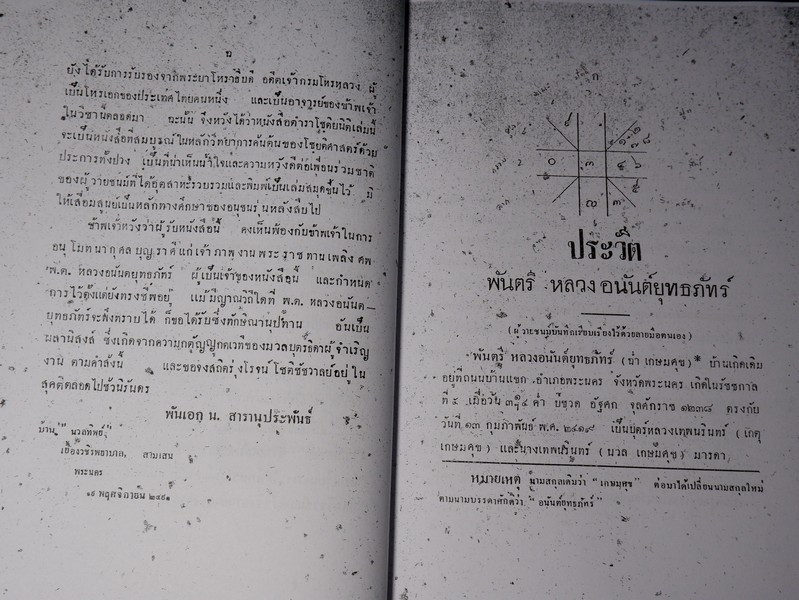 ฃ
ยังได้รับการรับรองจากพระยาโหราธิบดี อดีตเจ้ากรมโหรหลวง ผู้
เป็นโหรเอกของประเทศไทยคนหนึ่ง และเป็นอาจารย์ของข้าพเจ้า
ในวิชานี้ตลอดมา ฉะนั้น จึงหวังได้ว่าหนังสือตำราโชติยนิติเล่มนี้
จะเป็นหนังสือที่สมบูรณ์ในหลักวิทยาการค้นต้นของโชยติศาสตร์ด้วย
ประการทั้งปวง เป็นที่น่าเห็นน้ำใจและความหวังดีต่อเพื่อนร่วมชาติ
ของผู้วายชนม์ที่ได้อุตสาหะรวบรวมและพิมพ์เป็นเล่มสมุดขึ้นไว้ มิ
ให้เสื่อมสูญย์เป็นหลักทางศึกษาของอนุชนรุ่นหลังสืบไป
ข้าพเจ้าหวังว่าผู้รับหนังสือนี้ คงเห็นพ้องกับข้าพเจ้าในการ
อนุโมทนากุศลบุญราศีแก่เจ้าภาพงานพระราชทานเพลิงศพ
พ.ต. หลวงอนันตยุทธภัทร์ ผู้เป็นเจ้าของหนังสือนี้ และกำหนด
การไว้ตั้งแต่ยังทรงชีพอยู่ แม้มีญาณวิถีใดที่ พ.ต. หลวงอนันต—
ยุทธภัทร์จะพึงทราบได้ ก็ขอได้รับซึ่งทักษิณานุปทาน อันเป็น
ผลานิสงส์ ซึ่งเกิดจากความกตัญญูกตเวทีของมวลบุตรธิดาผู้จำเริญ
งาน ตามคำสั่งนี้ และขอจงสถิตรุ่งโรจน์โชติชัชวาลย์อยู่ใน
สุคติตลอดไปชั่วนิรันดร
พันเอก น. สารานุประพันธ์
บ้าน " นวลทิพย์"
เยื้องวชิรพยาบาล, สามเสน
พระนคร
๑๕ พฤศจิกายน ๒๔๙๑
ก
ประวัติ
พันตรี หลวงอนันต์ยุทธภัทร์
(ผู้วายชนม์บันทึกเรียบเรียงไว้ด้วยลายมือตนเอง)
พันตรี หลวงอนันต์ยุทธภัทร์ (น่ำ เกษมศุข)* บ้านเกิดเดิม
อยู่ที่ถนนบ้านแขก อำเภอพระนคร จังหวัดพระนคร เกิดในรัชชกาล
ที่ ๕ เมื่อวัน ค่ำ ปีชวด อัฐศก จุลศักราช ๑๒๓๘ ตรงกับ
วันที่ ๑๓ กุมภาพันธ์ พ.ศ. ๒๔๑๙ เป็นบุตร์หลวงเทพนรินทร์ (เกตุ
เกษมศุข) และนางเทพนรินทร์ (นวล เกษมศุข) มารดา
หมายเหตุ นามสกุลเดิมว่า "เกษมศุข" ต่อมาได้เปลี่ยนนามสกุลใหม่
ตามนามบรรดาศักดิ์ว่า "อนันต์ยุทธภัทร์"